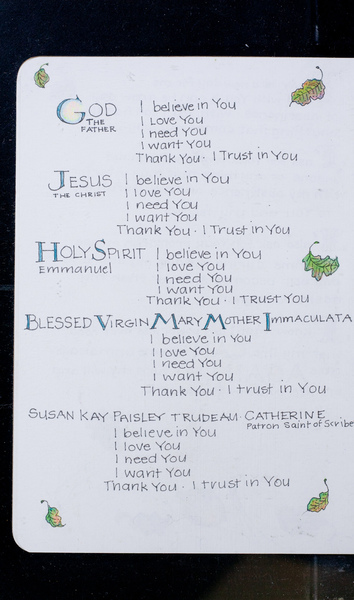 GOD I believe in You
THE I Love You
FATHER I need You
I want You
Thank You · I Trust in You
JESUS I believe in You
THE CHRIST I love You
I need You
I want You
Thank You · I Trust in You
HOLY SPIRIT I believe in You
Emmanuel I love You
I need You
I want You
Thank You · I Trust You
BLESSED VIRGIN MARY MOTHER IMMACULATA
I believe in You
I love You
I need You
I want You
Thank You · I trust in You
SUSAN KAY PAISLEY TRUDEAU · CATHERINE
Patron Saint of Scribe
I believe in You
I love You
I need You
I want You
Thank You · I trust in You